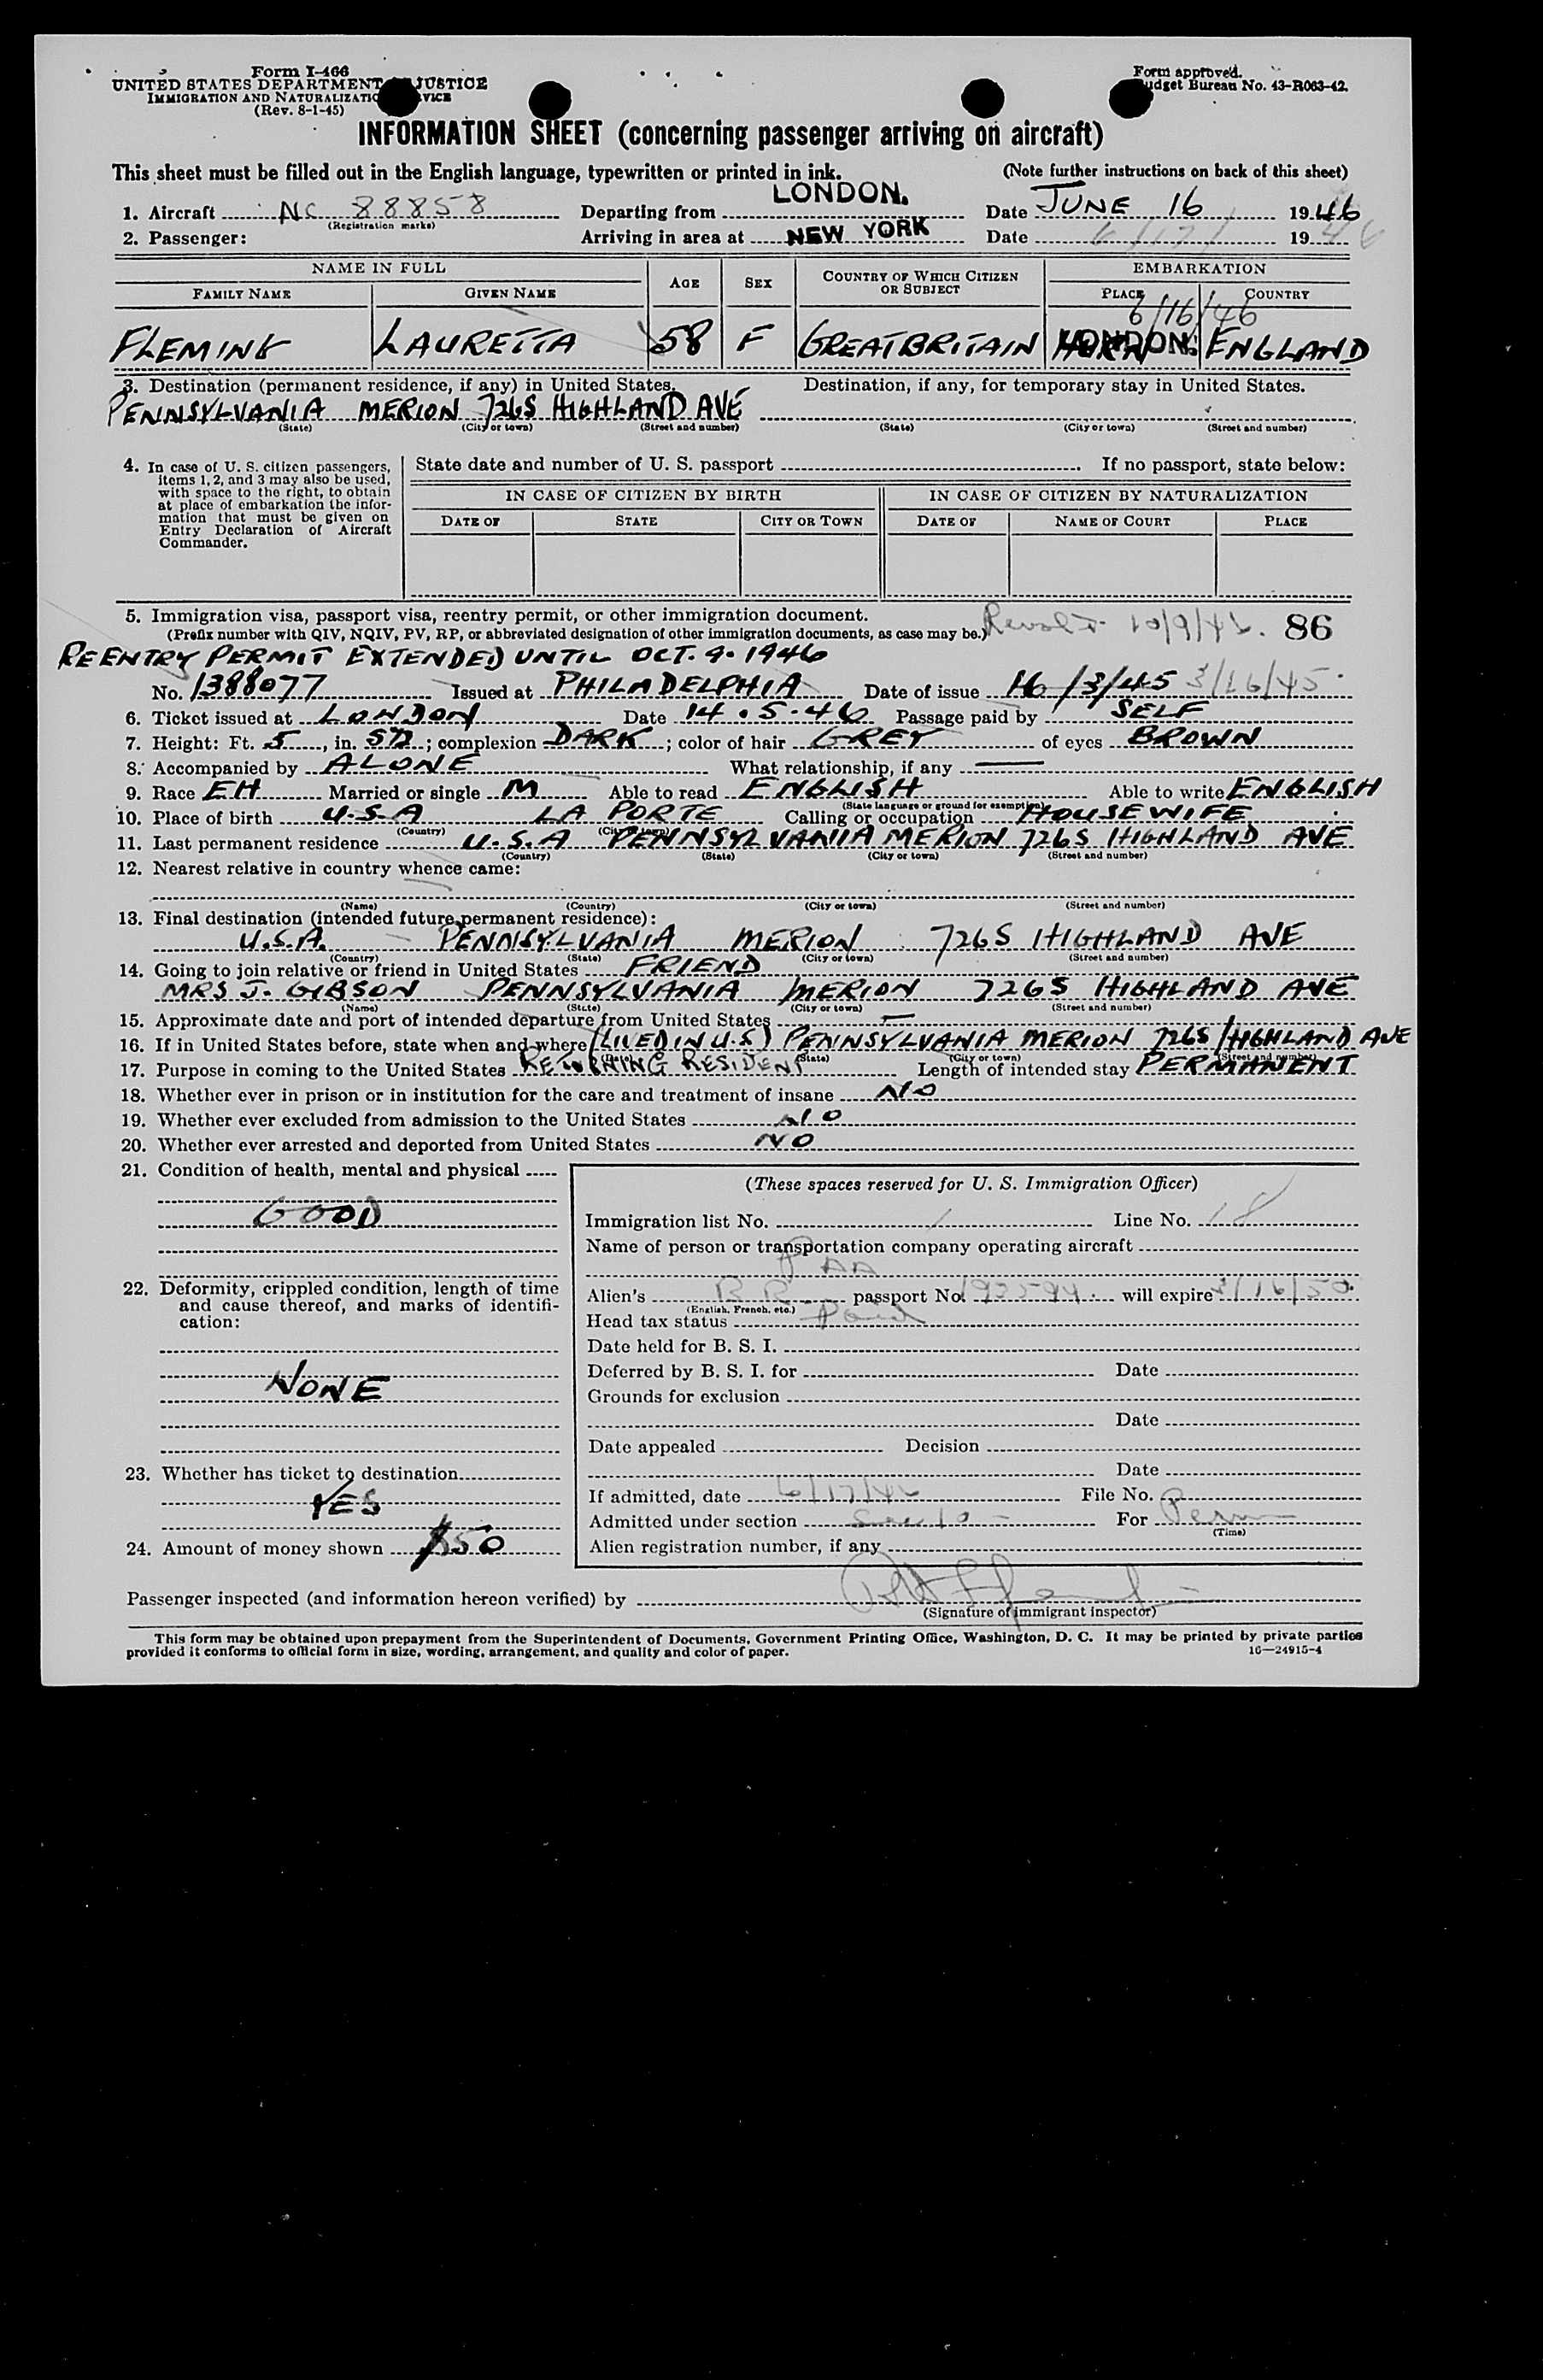 Form I-466
UNITED STATES DEPARTMENT JUSTICE
IMMIGRATION AND NATURALIZATIO VICE
(Rev. 8-1-45)
Form approved.
udget Bureau No. 43-R063-42.
INFORMATION SHEET (concerning passenger arriving on aircraft)
This sheet must be filled out in the English language, typewritten or printed in ink. (Note further instructions on back of this sheet)
1. Aircraft NC 88858 Departing from LONDON. Date JUNE 16 1946
(Registration marks)
2. Passenger: Arriving in area at NEW YORK Date 6/17/ 1946
NAME IN FULL AGE SEX COUNTRY OF WHICH CITIZEN OR SUBJECT EMBARKATION
FAMILY NAME GIVEN NAME PLACE COUNTRY
6/16/46
FLEMING LAURETTA 58 F GREAT BRITAIN LONDON. ENGLAND
3. Destination (permanent residence, if any) in United States. Destination, if any, for temporary stay in United States.
PENNSYLVANIA MERION 726S HIGHLAND AVE
(State) (City or town) (Street and number) (State) (City or town) (Street and number)
4. In case of U. S. citizen passengers, items 1, 2, and 3 may also be used, with space to the right, to obtain at place of embarkation the information that must be given on Entry Declaration of Aircraft Commander.
State date and number of U. S. passport If no passport, state below:
IN CASE OF CITIZEN BY BIRTH IN CASE OF CITIZEN BY NATURALIZATION
DATE OF STATE CITY OR TOWN DATE OF NAME OF COURT PLACE
5. Immigration visa, passport visa, reentry permit, or other immigration document.
(Prefix number with QIV, NQIV, PV, RP, or abbreviated designation of other immigration documents, as case may be.) 10/9/46. 86
REENTRY PERMIT EXTENDED UNTIL OCT. 9. 1946
No. 1388077 Issued at PHILADELPHIA Date of issue 16/3/45 3/16/45
6. Ticket issued at LONDON Date 14.5.46 Passage paid by SELF
7. Height: Ft. 5, in. ; complexion DARK; color of hair GREY of eyes BROWN
8. Accompanied by ALONE What relationship, if any —
9. Race EH Married or single M Able to read ENGLISH Able to write ENGLISH
(State language or ground for exemption)
10. Place of birth U.S.A LA PORTE Calling or occupation HOUSEWIFE
(Country) (City or town)
11. Last permanent residence U.S.A PENNSYLVANIA MERION 726S HIGHLAND AVE
(Country) (State) (City or town) (Street and number)
12. Nearest relative in country whence came:
(Name) (Country) (City or town) (Street and number)
13. Final destination (intended future permanent residence):
U.S.A. PENNSYLVANIA MERION 726S HIGHLAND AVE
(Country) (State) (City or town) (Street and number)
14. Going to join relative or friend in United States FRIEND
MRS J. GIBSON PENNSYLVANIA MERION 726S HIGHLAND AVE
(Name) (State) (City or town) (Street and number)
15. Approximate date and port of intended departure from United States —
16. If in United States before, state when and where (LIVED IN U.S) PENNSYLVANIA MERION 726S HIGHLAND AVE
(Date) (State) (City or town) (Street and number)
17. Purpose in coming to the United States RETURNING RESIDENT Length of intended stay PERMANENT
18. Whether ever in prison or in institution for the care and treatment of insane NO
19. Whether ever excluded from admission to the United States NO
20. Whether ever arrested and deported from United States NO
21. Condition of health, mental and physical
GOOD
22. Deformity, crippled condition, length of time and cause thereof, and marks of identification:
NONE
23. Whether has ticket to destination
YES
24. Amount of money shown $50
(These spaces reserved for U. S. Immigration Officer)
Immigration list No. / Line No. 18
Name of person or transportation company operating aircraft
PAA
Alien's passport No. 193594 will expire 3/16/50
(English, French, etc.)
Head tax status Paid
Date held for B. S. I.
Deferred by B. S. I. for Date
Grounds for exclusion
Date
Date appealed Decision
Date
If admitted, date 6/17/46 File No.
Admitted under section Sec 10 For Perm
(Time)
Alien registration number, if any
Passenger inspected (and information hereon verified) by
(Signature of immigrant inspector)
This form may be obtained upon prepayment from the Superintendent of Documents, Government Printing Office, Washington, D. C. It may be printed by private parties
provided it conforms to official form in size, wording, arrangement, and quality and color of paper. 16—24915-4